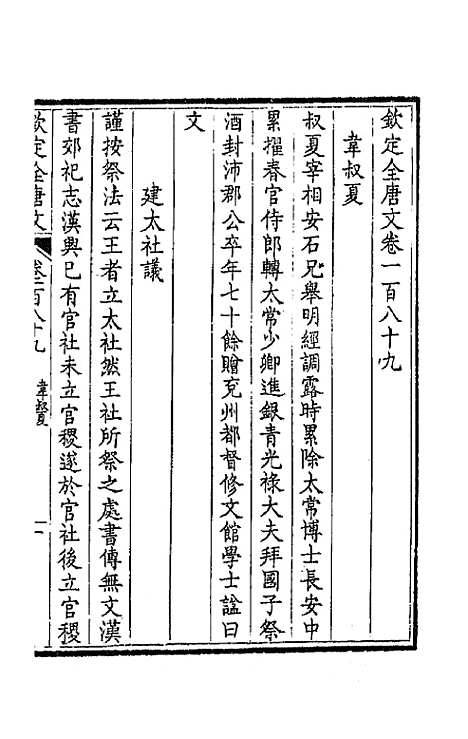 欽定全唐文卷一百八十九
韋叔夏
叔夏宰相安石兄舉明經調露時累除太常博士長安中
累擢春官侍郎轉太常少卿進銀青光祿大夫拜國子祭
酒封沛郡公卒年七十餘贈兗州都督修文館學士諡曰
文
建太社議
謹按祭法云王者立太社然王社所祭之處書傳無文漢
書郊祀志漢興已有官社未立官稷遂於官社後立官稷
欽定全唐文 卷一百八十九 韋叔夏 一